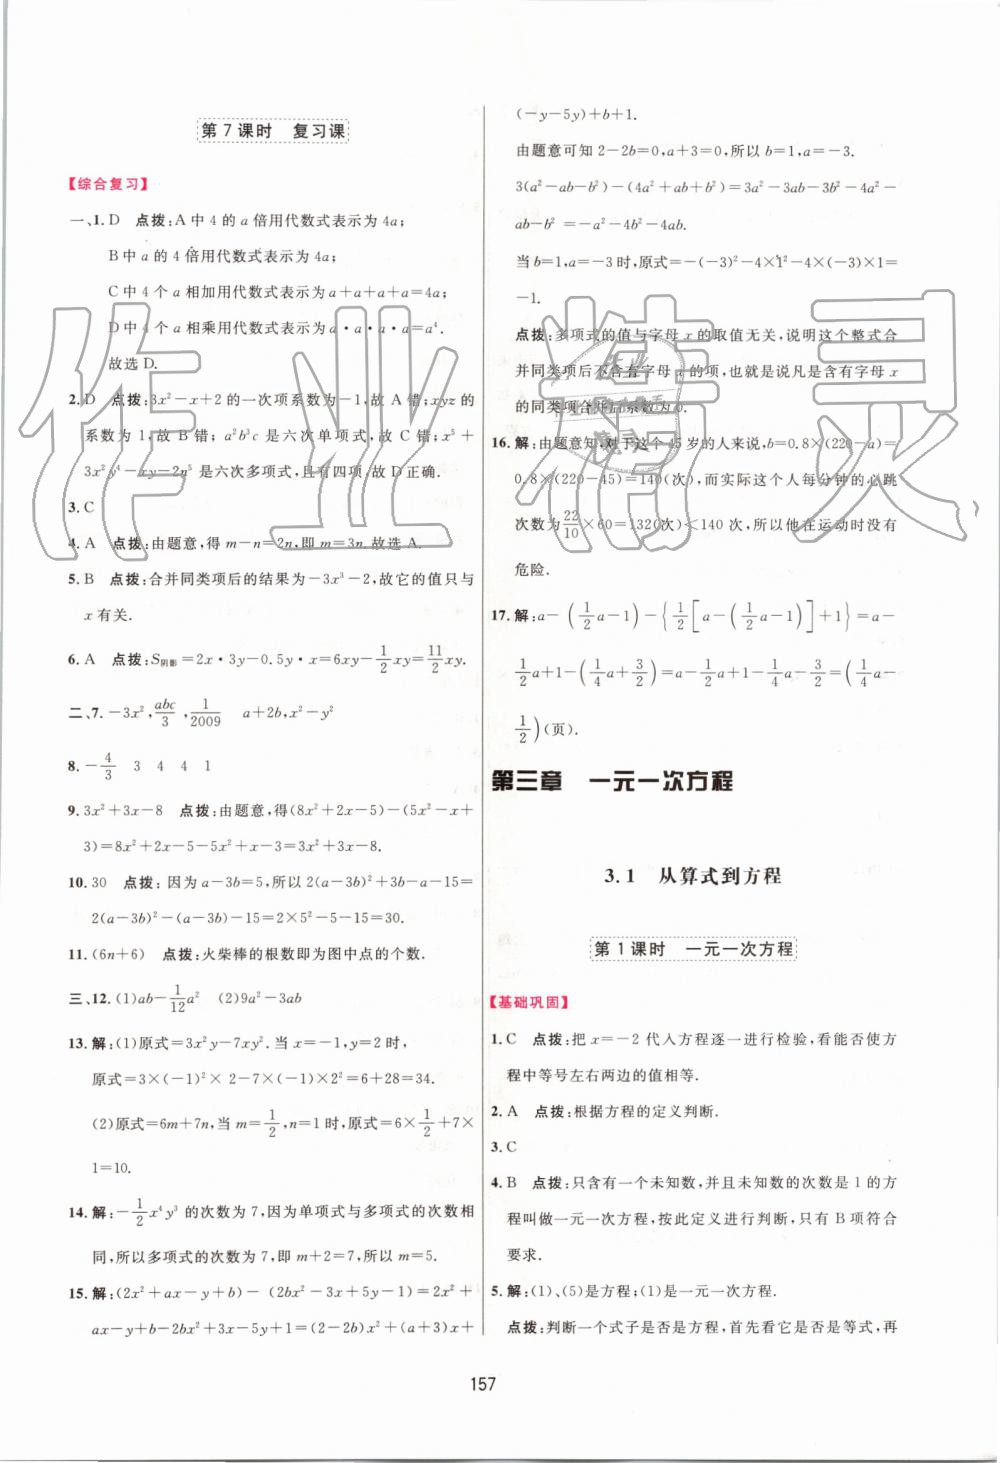 第 7 课时　复习课
【综合复习】
一、1. D　点拨:A 中 4 的 a 倍用代数式表示为 4a;
B 中 a 的 4 倍用代数式表示为 4a;
C 中 4 个 a 相加用代数式表示为 a+a+a+a=4a;
D 中 4 个 a 相乘用代数式表示为 a·a·a·a=a⁴.
故选 D.
2. D　点拨:3x²-x+2 的一次项系数为-1,故 A 错;xyz 的
系数为 1,故 B 错;a²b³c 是六次单项式,故 C 错;x⁵+
3x²y⁴-xy-2n⁵ 是六次多项式,且含有四项,故 D 正确.
3. C
4. A　点拨:由题意,得 m-n=2n,即 m=3n. 故选 A.
5. B　点拨:合并同类项后的结果为-3x³-2,故它的值只与
x 有关.
6. A　点拨:S阴影=2x·3y-0.5y·x=6xy-1/2xy=11/2xy.
二、7. -3x²,abc/3,1/2009　a+2b,x²-y²
8. -4/3　3　4　4　1
9. 3x²+3x-8　点拨:由题意,得(8x²+2x-5)-(5x²-x+
3)=8x²+2x-5-5x²+x-3=3x²+3x-8.
10. 30　点拨:因为 a-3b=5,所以 2(a-3b)²+3b-a-15=
2(a-3b)²-(a-3b)-15=2×5²-5-15=30.
11. (6n+6)　点拨:火柴棒的根数即为图中点的个数.
三、12. (1)ab-1/12a²　(2)9a²-3ab
13. 解:(1)原式=3x²y-7xy². 当 x=-1,y=2 时,
原式=3×(-1)²×2-7×(-1)×2²=6+28=34.
(2)原式=6m+7n,当 m=1/2,n=1 时,原式=6×1/2+7×
1=10.
14. 解:-1/2x⁴y³ 的次数为 7,因为单项式与多项式的次数相
同,所以多项式的次数为 7,即 m+2=7,所以 m=5.
15. 解:(2x²+ax-y+b)-(2bx²-3x+5y-1)=2x²+
ax-y+b-2bx²+3x-5y+1=(2-2b)x²+(a+3)x+
(-y-5y)+b+1.
由题意可知 2-2b=0,a+3=0,所以 b=1,a=-3.
3(a²-ab-b²)-(4a²+ab+b²)=3a²-3ab-3b²-4a²-
ab-b²=-a²-4b²-4ab.
当 b=1,a=-3 时,原式=-(-3)²-4×1²-4×(-3)×1=
-1.
点拨:多项式的值与字母 x 的取值无关,说明这个整式合
并同类项后不含有字母 x 的项,也就是说凡是含有字母 x
的同类项合并后系数为 0.
16. 解:由题意知,对于这个 45 岁的人来说,b=0.8×(220-a)=
0.8×(220-45)=140(次),而实际这个人每分钟的心跳
次数为22/10×60=132(次)<140 次,所以他在运动时没有
危险.
17. 解:a-(1/2a-1)-{1/2[a-(1/2a-1)]+1}=a-
1/2a+1-(1/4a+3/2)=a-1/2a+1-1/4a-3/2=(1/4a-
1/2)(页).
第三章　一元一次方程
3.1　从算式到方程
第 1 课时　一元一次方程
【基础巩固】
1. C　点拨:把 x=-2 代入方程逐一进行检验,看能否使方
程中等号左右两边的值相等.
2. A　点拨:根据方程的定义判断.
3. C
4. B　点拨:只含有一个未知数,并且未知数的次数是 1 的方
程叫做一元一次方程,按此定义进行判断,只有 B 项符合
要求.
5. 解:(1)、(5)是方程;(1)是一元一次方程.
点拨:判断一个式子是否是方程,首先看它是否是等式,再
157
作业精灵